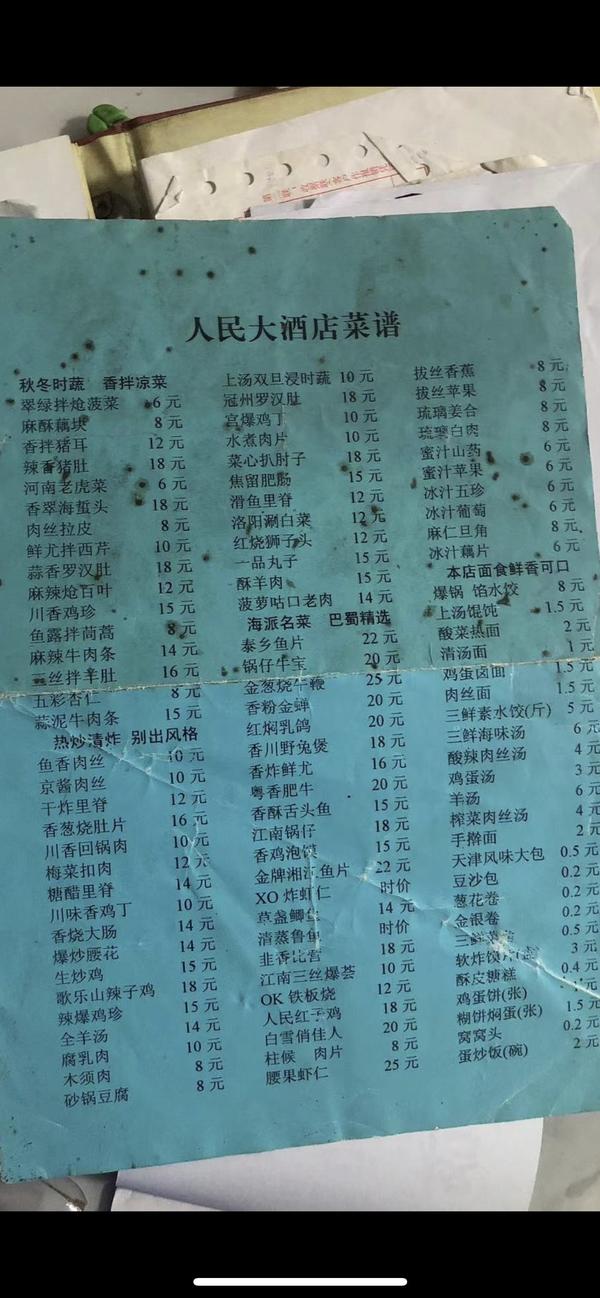 人民大酒店菜谱
秋冬时蔬 香拌凉菜
翠绿拌炝菠菜 6元
麻酥藕块 8元
香拌猪耳 12元
辣香猪肚 18元
河南老虎菜 6元
香翠海蜇头 18元
肉丝拉皮 8元
鲜尤拌西芹 10元
蒜香罗汉肚 18元
麻辣炝百叶 12元
川香鸡珍 15元
鱼露拌茼蒿 8元
麻辣牛肉条 14元
三丝拌羊肚 16元
五彩杏仁 8元
蒜泥牛肉条 15元
热炒清炸 别出风格
鱼香肉丝 10元
京酱肉丝 10元
干炸里脊 12元
香葱烧肚片 16元
川香回锅肉 10元
梅菜扣肉 12元
糖醋里脊 14元
川味香鸡丁 10元
香烧大肠 14元
爆炒腰花 14元
生炒鸡 15元
歌乐山辣子鸡 18元
辣爆鸡珍 15元
全羊汤 14元
腐乳肉 10元
木须肉 8元
砂锅豆腐 8元
上汤双旦浸时蔬 10元
冠州罗汉肚 18元
宫爆鸡丁 10元
水煮肉片 10元
菜心扒肘子 18元
焦留肥肠 15元
滑鱼里脊 12元
洛阳涮白菜 12元
红烧狮子头 12元
一品丸子 15元
酥羊肉 15元
菠萝咕口老肉 14元
海派名菜 巴蜀精选
泰乡鱼片 22元
锅仔牛宝 20元
金葱烧牛鞭 25元
香粉金蝉 20元
红焖乳鸽 20元
香川野兔煲 18元
香炸鲜尤 16元
粤香肥牛 20元
香酥舌头鱼 15元
江南锅仔 18元
香鸡泡馍 15元
金牌湘江鱼片 22元
XO炸虾仁 时价
草盏鲫鱼 14元
清蒸鲁鱼 时价
韭香比管 18元
江南三丝爆荟 10元
OK铁板烧 12元
人民红子鸡 18元
白雪俏佳人 20元
柱候 肉片 8元
腰果虾仁 25元
拔丝香蕉 8元
拔丝苹果 8元
琉璃姜合 8元
琉璃白肉 8元
蜜汁山药 6元
蜜汁苹果 6元
冰汁五珍 6元
冰汁葡萄 6元
麻仁旦角 8元
冰汁藕片 6元
本店面食鲜香可口
爆锅 馅水饺 8元
上汤馄饨 1.5元
酸菜热面 2元
清汤面 1元
鸡蛋卤面 1.5元
肉丝面 1.5元
三鲜素水饺(斤) 5元
三鲜海味汤 6元
酸辣肉丝汤 4元
鸡蛋汤 3元
羊汤 6元
榨菜肉丝汤 4元
手擀面 2元
天津风味大包 0.5元
豆沙包 0.2元
葱花卷 0.2元
金银卷 0.2元
三鲜 0.5元
软炸馍片 3元
酥皮糖糕 0.4元
鸡蛋饼(张) 1元
糊饼焖蛋(张) 1.5元
窝窝头 0.2元
蛋炒饭(碗) 2元